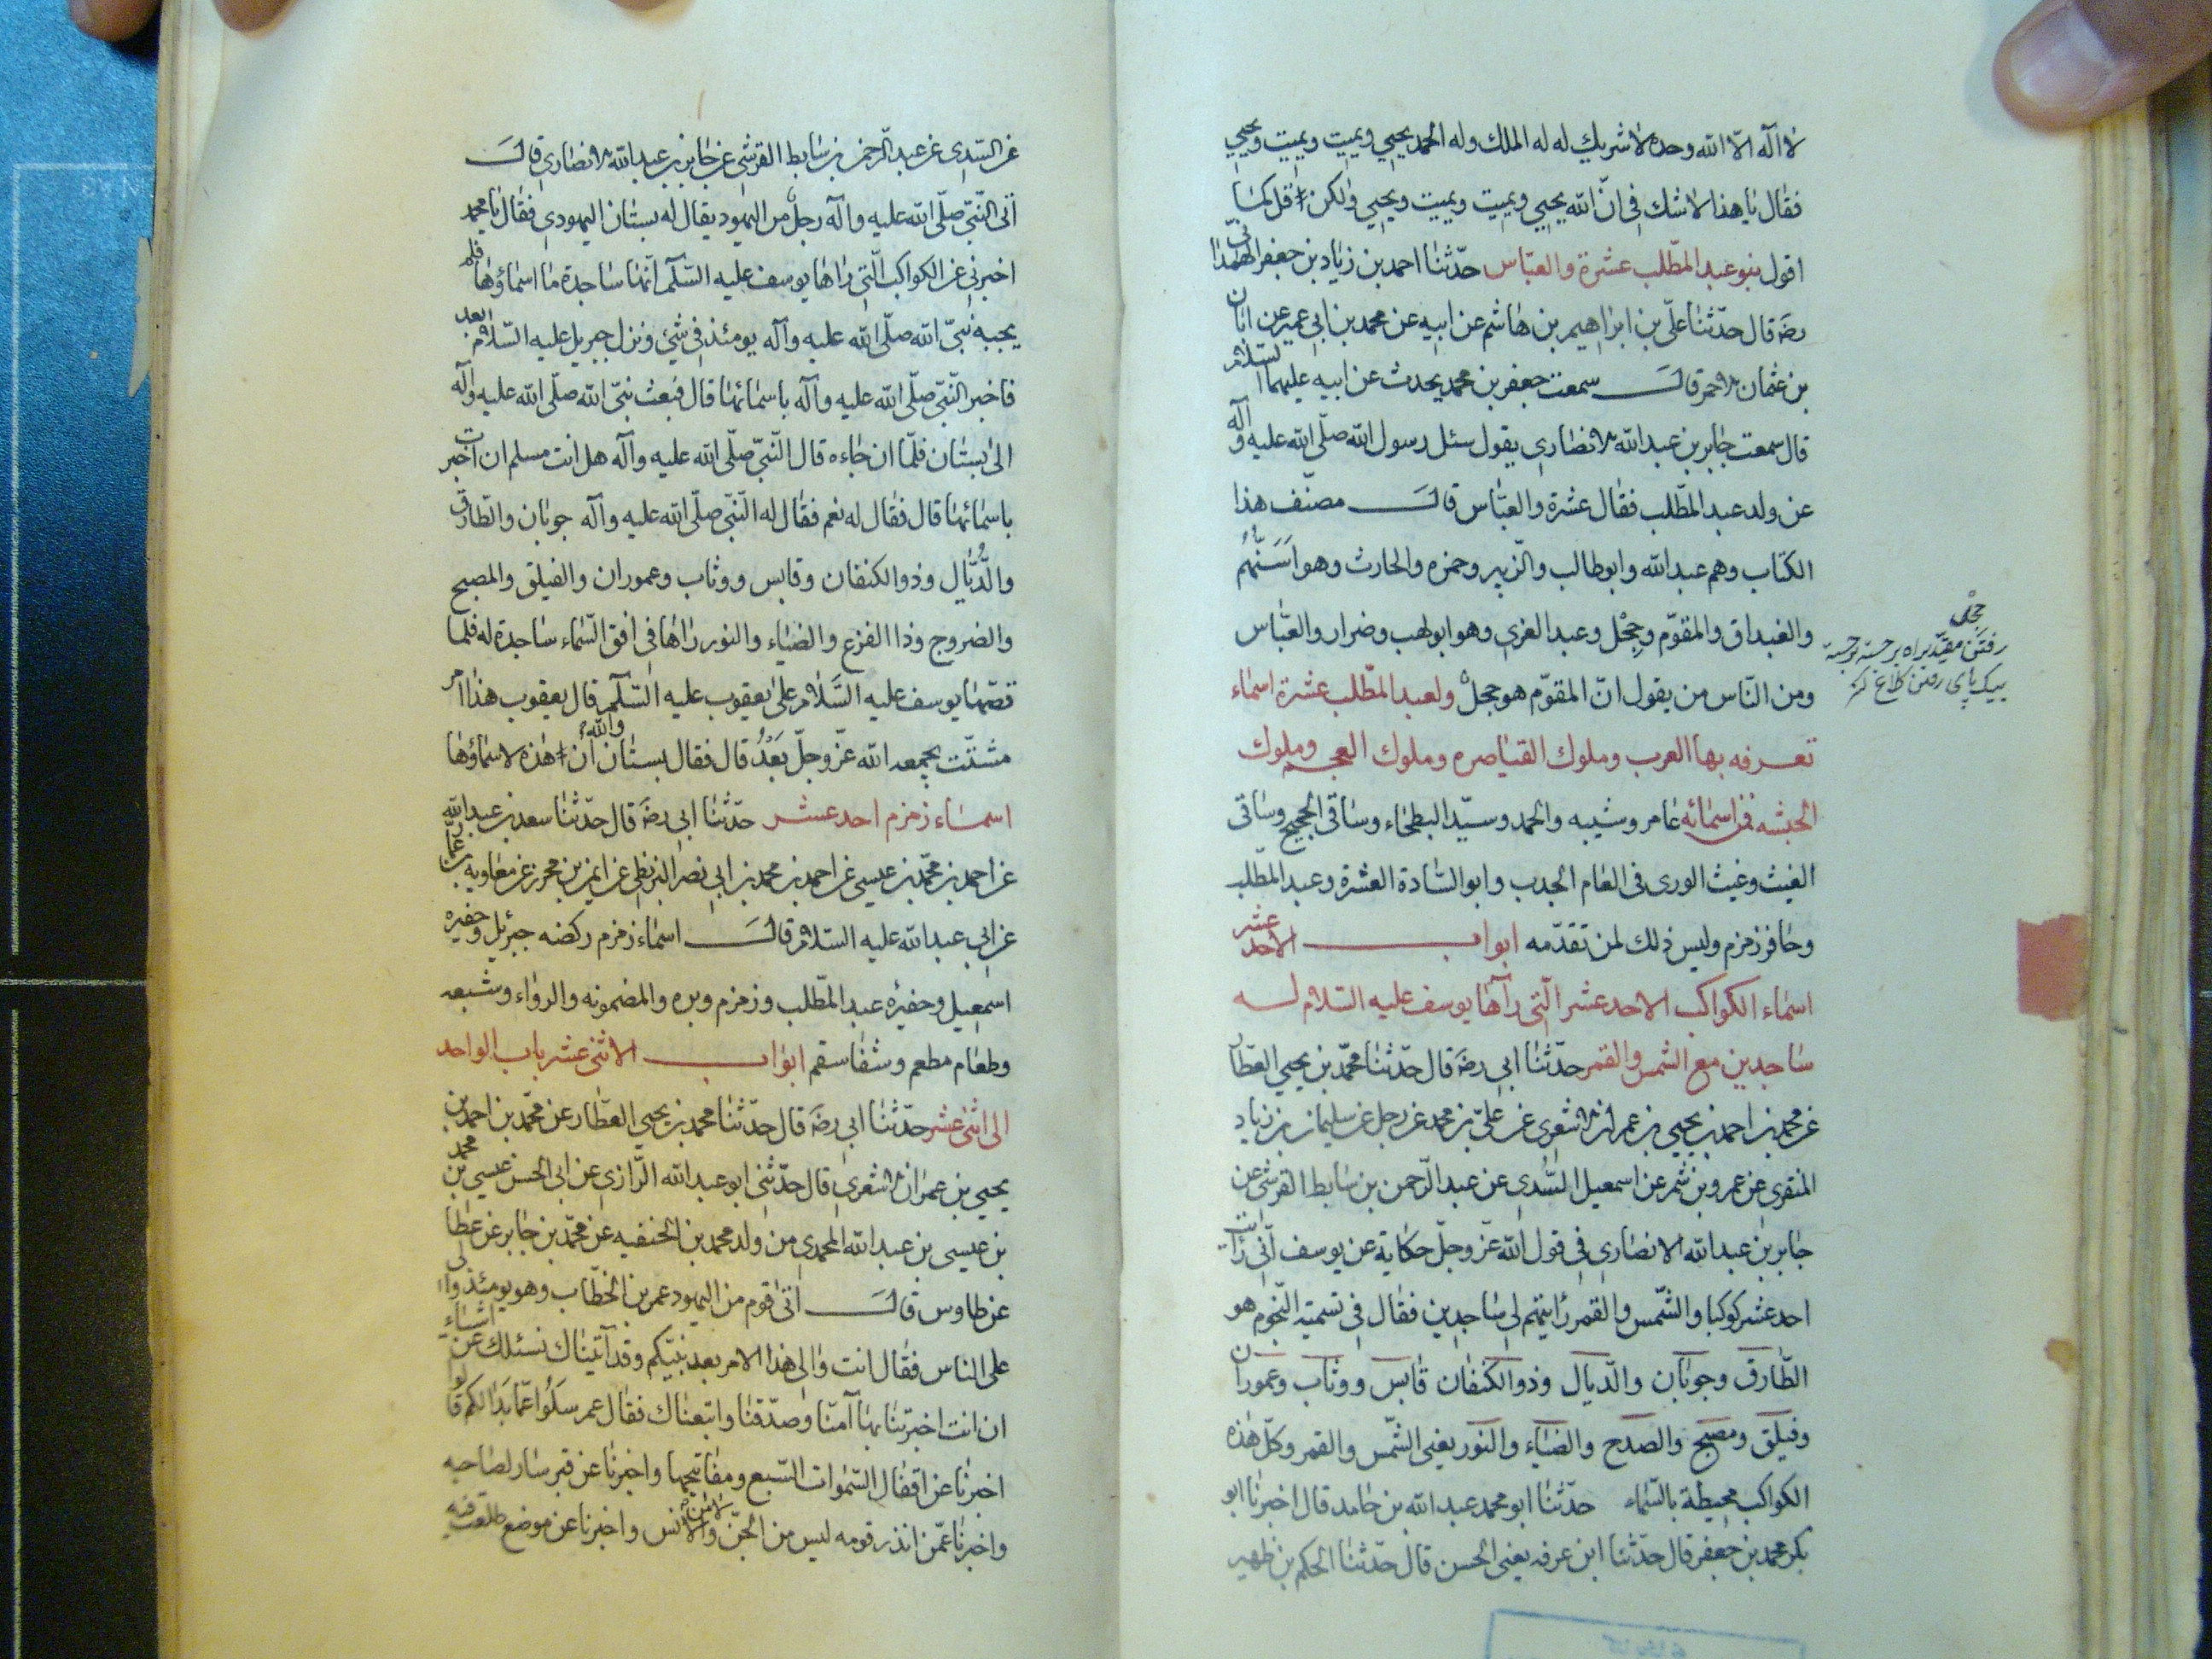 لا اله الّا الله وحده لا شريك له له الملك وله الحمد يحيي ويميت ويميت ويحيي
فقال يا هذا لا شك في انّ الله يحيي ويميت ويميت ويحيي ولكن قل كما
اقول بنو عبد المطّلب عشرة والعبّاس حدّثنا احمد بن زياد بن جعفر الهمداني
رضه قال حدّثنا علّي بن ابراهيم بن هاشم عن ابيه عن محمد بن ابي عمير عن ابان
بن عثمان الاحمر قال سمعت جعفر بن محمد يحدث عن ابيه عليهما السلام
قال سمعت جابر بن عبد الله الانصاري يقول سئل رسول الله صلّى الله عليه وآله
عن ولد عبد المطّلب فقال عشرة والعبّاس قال مصنّف هذا
الكتاب وهم عبد الله وابو طالب والزّبير وحمزه والحارث وهو اسنّهم
والغيداق والمقوّم وحجل وعبد العزى وهو ابو لهب وضرار والعبّاس
ومن النّاس من يقول انّ المقوّم هو حجل ولعبد المطّلب عشرة اسماء
تعرفه بها العرب وملوك القياصره وملوك العجم وملوك
الحبشه فمن اسمائه عامر وشيبه والحمد وسيّد البطحاء وساقي الحجيج وساقي
الغيث وغيث الورى في العام الجدب وابو السّادة العشرة وعبد المطّلب
وحافر زمزم وليس ذلك لمن تقدّمه ابواب الاحد عشر
اسماء الكواكب الاحد عشر الّتي رآها يوسف عليه السّلام له
ساجدين مع الشمس والقمر حدّثنا ابي رضه قال حدّثنا محمّد بن يحيي العطّار
عن محمد بن احمد بن يحيي بن عمران الاشعرى عن علّي بن محمد عن رجل عن سليمان بن زياد
المنقرى عن عمرو بن شمر عن اسمعيل السّدى عن عبد الرّحمن بن سابط القرشى عن
جابر بن عبد الله الانصاري في قول الله عزّ وجلّ حكاية عن يوسف انّي رايت
احد عشر كوكبا والشّمس والقمر رايتهم لي ساجدين فقال في تسمية النّجوم هو
الطّارق وجوبان والذّيال وذو الكنفان قابس ووثاب وعموران
وفيلق ومصبح والصدح والضياء والنور يعني الشّمس والقمر وكلّ هذه
الكواكب محيطة بالسّماء حدّثنا ابو محمد عبد الله بن حامد قال اخبرنا ابو
بكر محمد بن جعفر قال حدّثنا ابن عرفه يعني الحسن قال حدّثنا الحكم بن ظهير
حجل
رفتن مقيّد براه برجسته برجسته
بيك پاى رفتن كلاغ
عن السّدى عن عبد الرّحمن بن سابط القرشي عن جابر بن عبد الله الانصارى قال
اتى النّبّي صلّى الله عليه وآله رجل من اليهود يقال له بستان اليهودي فقال يا محمد
اخبرني عن الكواكب الّتي راها يوسف عليه السّلم انّها ساجدة ما اسماؤها فلم
يجبه نبيّ الله صلّى الله عليه وآله يومئذ في شئ ونزل جبريل عليه السّلام بعد
فاخبر النّبّي صلّى الله عليه وآله باسمائها قال فبعث نبّي الله صلّى الله عليه وآله
الى بستان فلمّا ان جاءه قال النّبّي صلّى الله عليه وآله هل انت مسلم ان اخبرت
باسمائها قال فقال له نعم فقال له النّبّي صلّى الله عليه وآله جوبان والطّارق
والذّيّال وذو الكنفان وقابس ووثاب وعموران والفيلق والمصبح
والضروج وذا الفزع والضياء والنور راها في افق السّماء ساجدة له فلما
قصّها يوسف عليه السّلام على يعقوب عليه السّلم قال يعقوب هذا امر
مشتّت يجمعه الله عزّ وجلّ بعد قال فقال بستان والله ان هذه لاسماؤها
اسماء زمزم احد عشر حدّثنا ابي رضه قال حدّثنا سعد بن عبد الله
عن احمد بن محمّد بن عيسى عن احمد بن محمد بن ابي نصر البزنطي عن ايمن بن محرز عن معاويه بن عمار
عن ابي عبد الله عليه السّلام قال اسماء زمزم ركضه جبرئيل وحفيره
اسمعيل وحفيره عبد المطّلب وزمزم وبره والمضمونه والرواء وشبعه
وطعام مطعم وشفا سقم ابواب الاثنى عشر باب الواحد
الى اثنى عشر حدّثنا ابي رضه قال حدّثنا محمد بن يحيي العطّار عن محمّد بن احمد بن
يحيي بن عمران الاشعرى قال حدّثني ابو عبد الله الرّازي عن ابي الحسن عيسى بن محمد
بن عيسى بن عبد الله المحمدي من ولد محمد بن الحنفيه عن محمّد بن جابر عن عطا
عن طاوس قال اتى قوم من اليهود عمر بن الخطّاب وهو يومئذ والى
على الناس فقال انت والي هذا الامر بعد نبيّكم وقد آتيناك نسئلك عن اشياء
ان انت اخبرتنا بها آمنّا وصدّقنا واتبعناك فقال عمر سلوا عمّا بدا لكم قالوا
اخبرنا عن اقفال السّموات السّبع ومفاتيحها واخبرنا عن قبر سار لصاحبه
واخبرنا عمّن انذر قومه ليس من الجنّ ولا من الانس واخبرنا عن موضع طلعت فيه